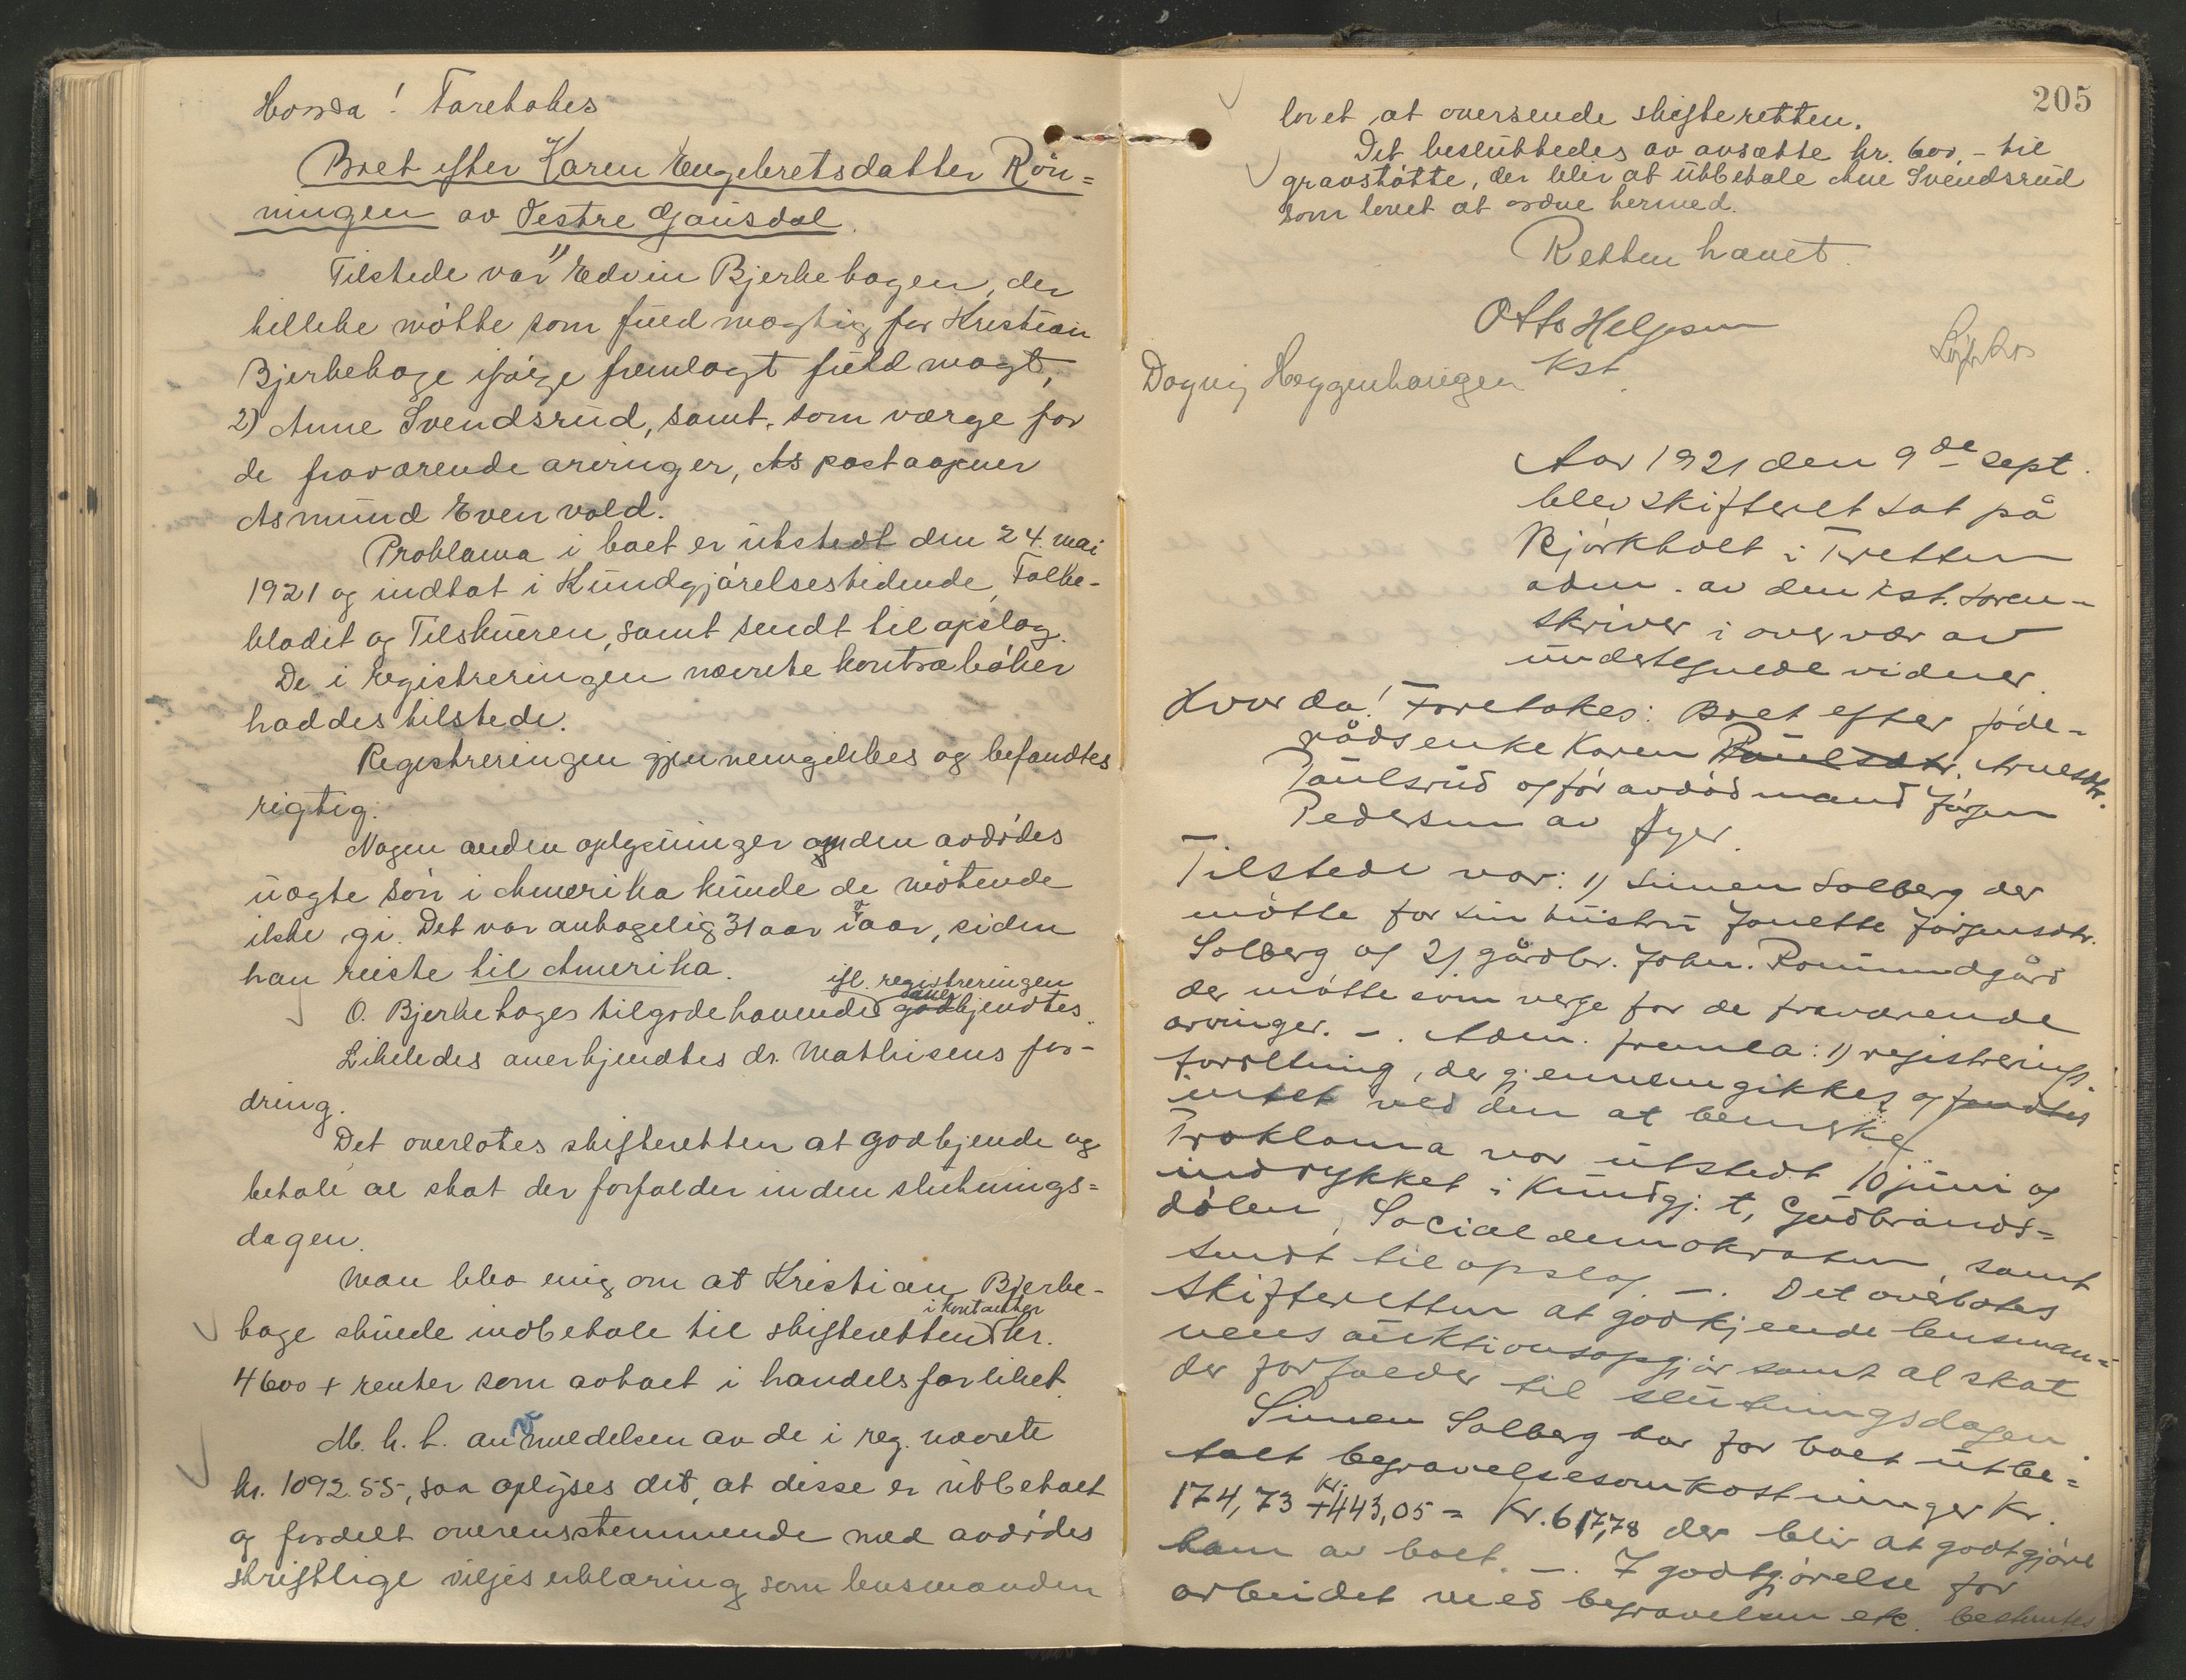 Hvorda! Foretokes
Boet efter Karen Engebretsdatter Rön=
ningen av Vestre Gausdal.
Tilstede var 1) Edvin Bjerkehagen, der
tillike mötte som fuldmægtig for Kristian
Bjerkehage ifölge fremlagt fuldmagt,
2) Anne Svendsrud, samt som værge for
de fraværende arvinger, As postaapner
Asmund Evenvold.
Proklama i boet er utstedt den 24. mai
1921 og indtat i Kundgjörelsestidende, Folke-
bladet og Tilskueren, samt sendt til opslag.
De i registreringen nævnte kontraböker
haddes tilstede.
Registreringen gjennemgikkes og befandtes
rigtig.
Nogen anden oplysninger om den avdödes
uægte sön i Amerika kunde de mötende
ikke gi. Det var antagelig 31 aar i aar, siden
han reiste til Amerika.
ifl. registreringen
O. Bjerkehages tilgodehavende godkjendtes.
Likeledes anerkjendtes dr. Mathisens for-
dring.
Det overlotes skifteretten at godkjende og
betale al skat der forfalder inden slutnings=
dagen.
Man blev enig om at Kristian Bjerke-
i kontanter
hage skulde indbetale til skifteretten kr.
4600 + renter som avtalt i handelsforliket.
M. h. t. anmeldelsen av de i reg. nævnte
kr. 1092.55, saa oplyses det, at disse er utbetalt
og fordelt overensstemmende med avdödes
skriftlige viljeserklæring som lensmanden
205
lovet at oversende skifteretten.
Det besluttedes av avsætte kr. 600,- til
gravstötte, der blir at utbetale Ane Svendsrud
som lovet at ordne hermed.
Retten hævet.
Otto Helgesen
Kst.
Dagny Heggenhaugen
Aar 1921 den 9de sept.
blev skifteret sat på
Bjørkholt i Tretten
adm. av den kst. soren-
skriver i overvær av
undertegnede vidner.
Hvorda! Foretokes: Boet efter föde-
rådsenke Karen Paulsdtr. Arnesdtr.
Paulsrud og för avdöd mand Jörgen
Pedersen av Øyer.
Tilstede var: 1) Simen Solberg der
mötte for sin hustru Jonette Jörgensdtr.
Solberg og 2) gårdbr. John. Romundgård
der mötte som verge for de fraværende
arvinger. -. Adm. fremla: 1) registrerings
forretning, der gjennemgikkes og fandtes
intet ved den at bemerke
Proklama var utstedt 10 juni og
indrykket i Kundgj. t, Gudbrands=
dölen, Socialdemokraten, samt
sendt til opslag. -. Det overlotes
skifteretten at godkjende lensman=
nens auktionsopgjör samt al skat
der forfalder til slutningsdagen.
Simen Solberg har for boet utbe=
talt begravelsesomkostninger Kr.
174,73 + kr. 443,05 = Kr. 617,78 der blir at godtgjöre
ham av boet. -. I godtgjörelse for
arbeidet med begravelsen etc. bestemtes